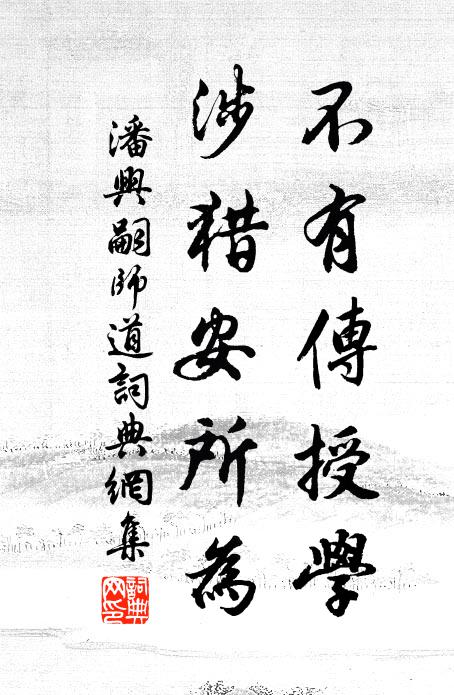 不有傳授學
涉猎安所為
潘興嗣師道詞典網集
詞典网印